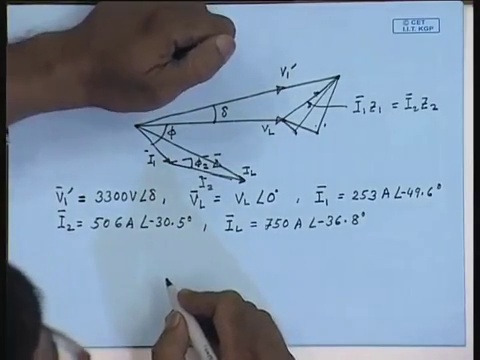 © CET
I.I.T. KGP
V̄₁′
δ
Ī₁z₁ = Ī₂z₂
V_L
ϕ
Ī₁
ϕ₂
I_L
Ī₂
V̄₁′ = 3300V∠δ, V̄_L = V_L∠0°, Ī₁ = 253A∠-49.6°
Ī₂ = 506A∠-30.5°, Ī_L = 750A∠-36.8°